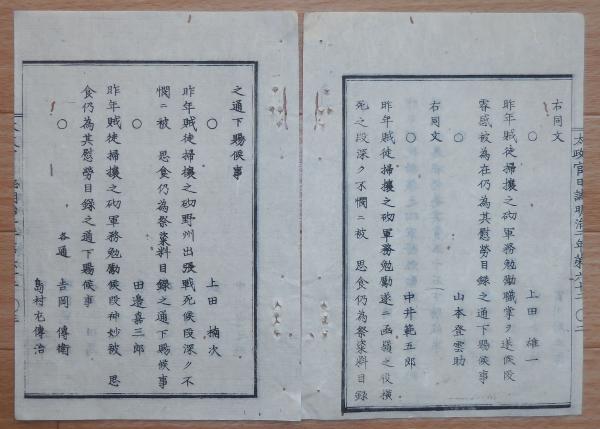 太政官日誌明治二年第六十二 〇二
右同文
〇 上田雄一
昨年賊徒掃攘之砌軍務勉勵職掌ヲ遂候段
容感被為在仍為其慰勞目錄之通下賜候事
〇 山本登雲助
右同文
〇 中井範五郎
昨年賊徒掃攘之砌軍務勉勵遂ニ函嶺之役横
死之段深ク不憫ニ被 思食仍為祭粢料目錄
之通下賜候事
〇 上田楠次
昨年賊徒掃攘之砌野州出張戦死候段深ク不
憫ニ被 思食仍為祭粢料目錄之通下賜候事
〇 田邊嘉三郎
昨年賊徒掃攘之砌軍務勉勵候段神妙被 思
食仍為其慰勞目錄之通下賜候事
〇 各通 吉岡傳衛
島村屯傳治